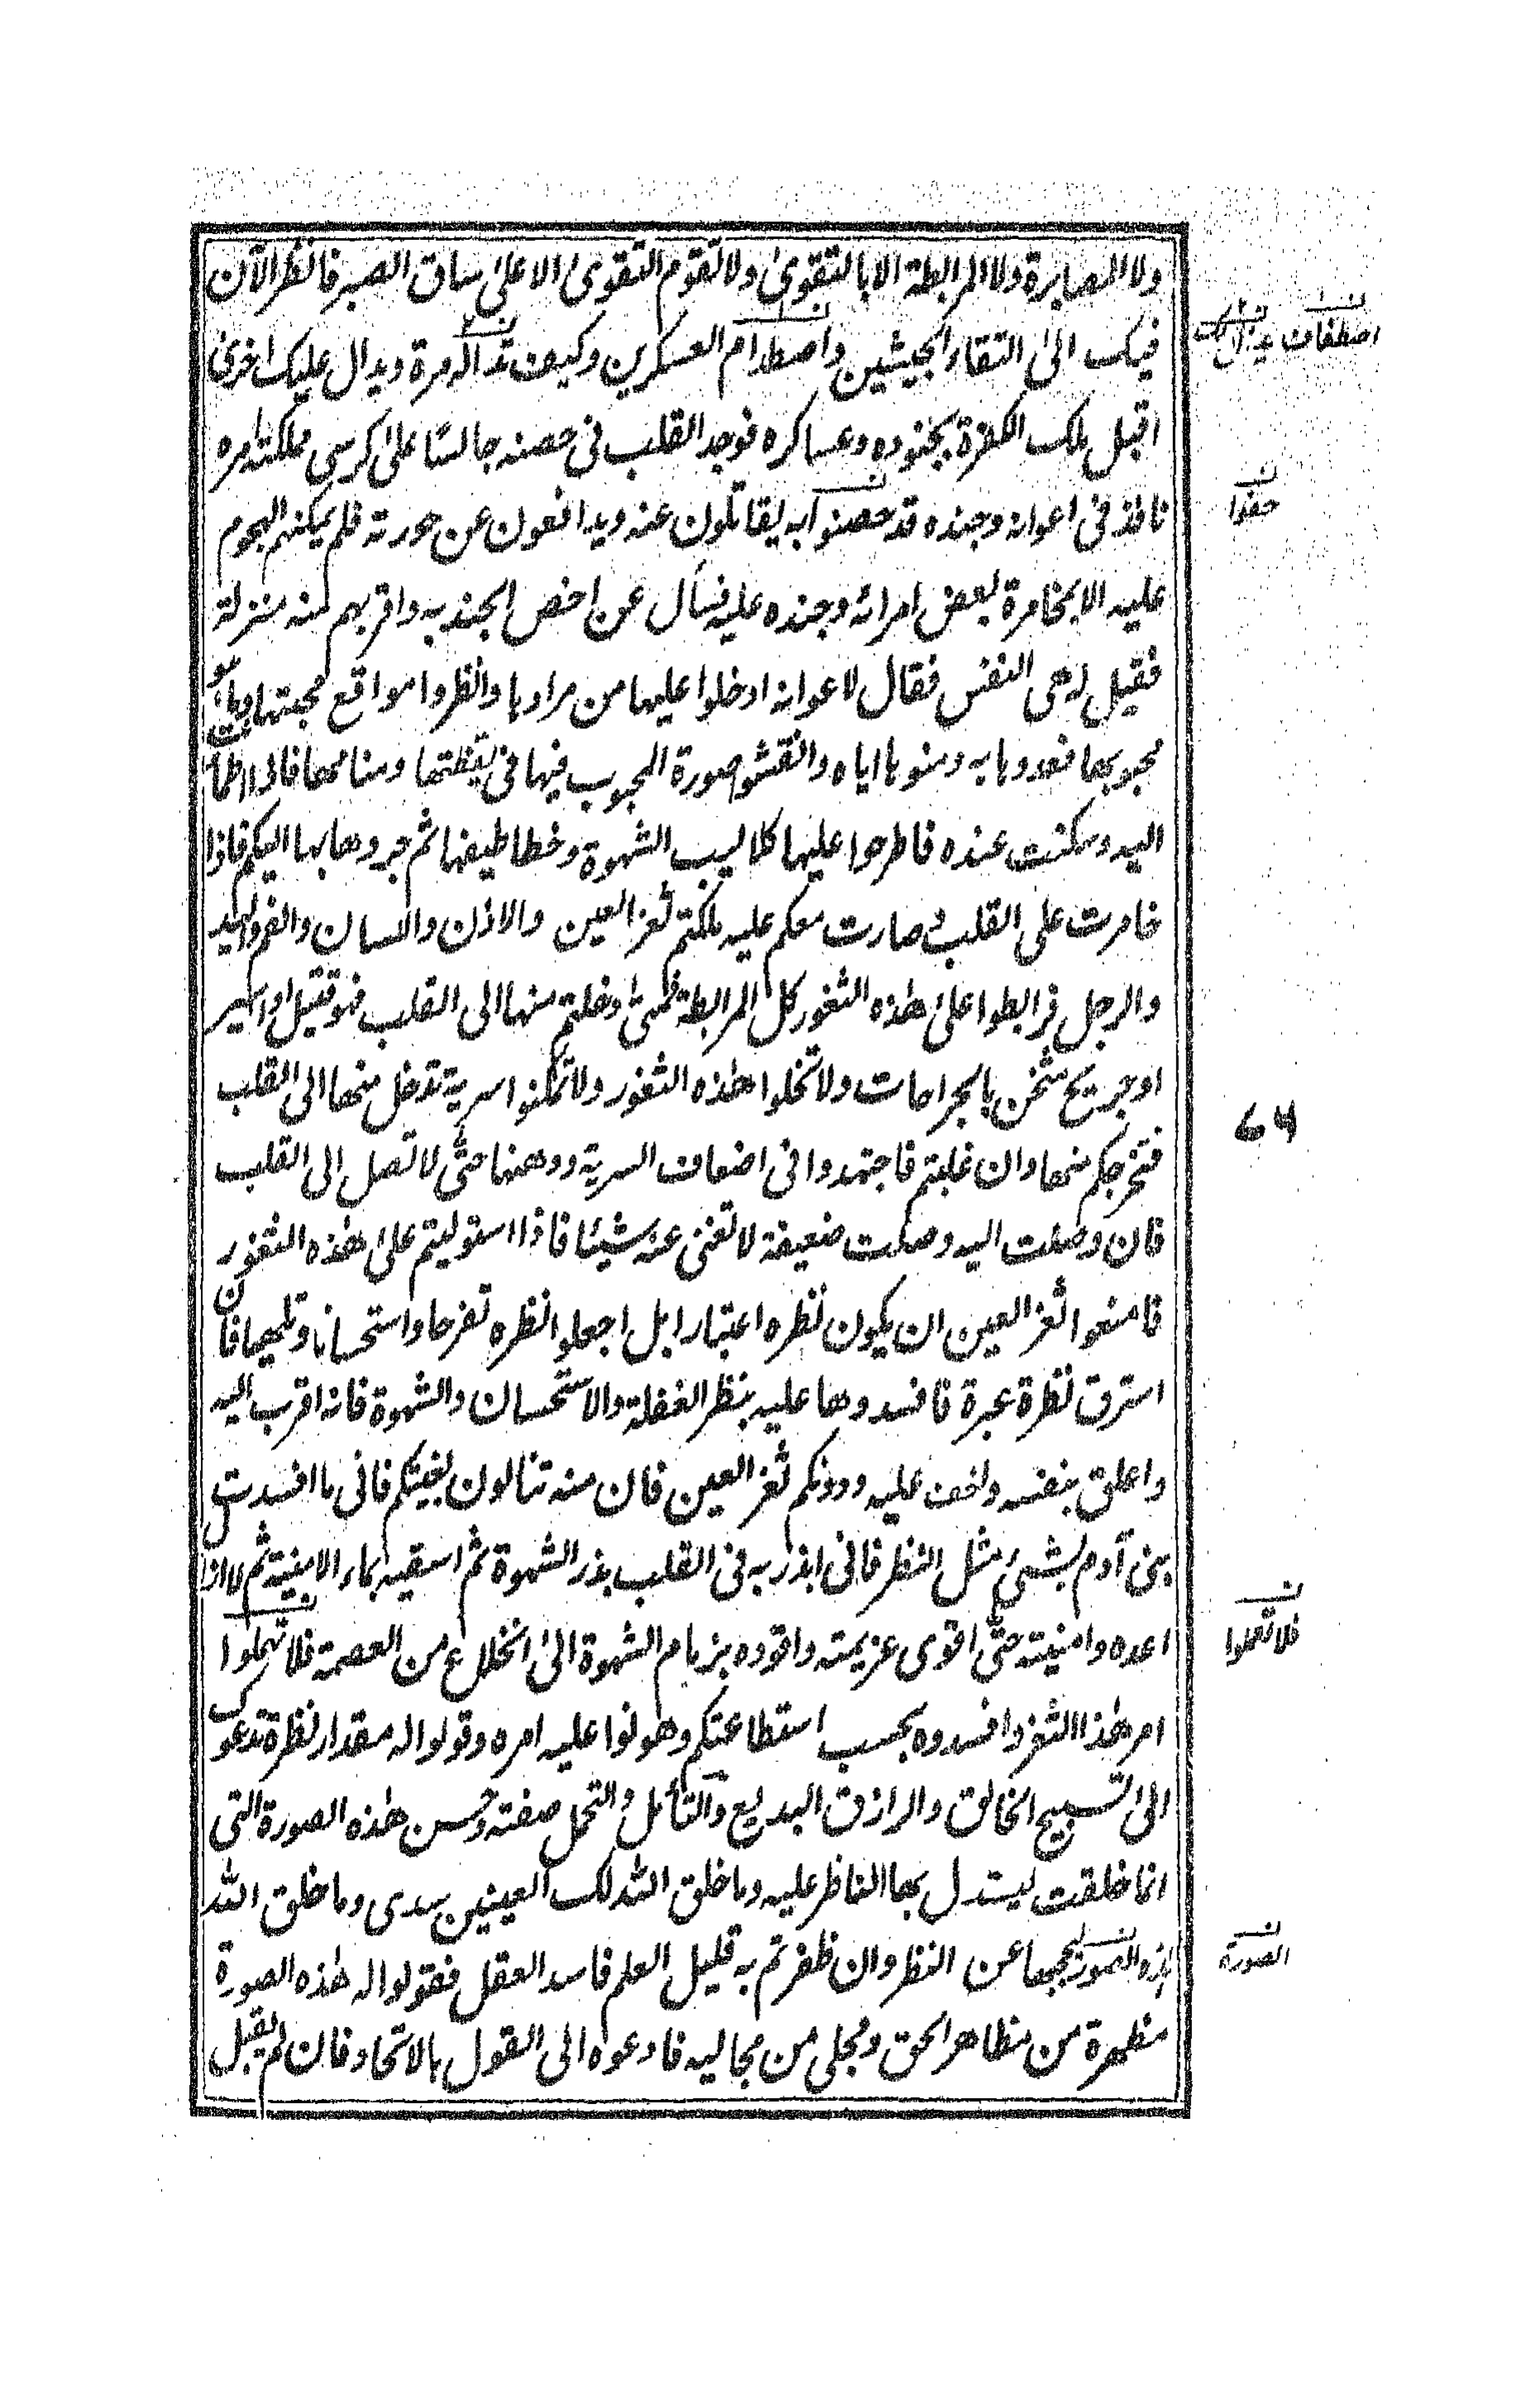 ولا المصابرة ولا المرابطة الا بالتقوى ولا تقوم التقوى الا على ساق الصبر فانظر الآن
فيك الى التقاء الجيشين واصطدام العسكرين وكيف تداله مرة ويدال عليك اخرى
اصطفاف يدال لك
اقبل ملك الكفرة بجنوده وعساكره فوجد القلب فى حصنه جالسًا على كرسى مملكته امره
نافذ فى اعوانه وجنده قد حصنوا به يقاتلون عنه ويدافعون عن حوزته فلم يمكنهم الهجوم
حفوا
عليه الا بمخامرة بعض امرائه وجنده عليه فسأل عن اخص الجند به واقربهم منه منزلة
فقيل له هى النفس فقال لاعوانه ادخلوا عليها من مرادها وانظروا مواقع محبتها وما هو
محبوبها فعدوها به ومنوها اياه وانقشوا صورة المحبوب فيها فى يقظتها ومنامها فاذا اطمأنت
اليه وسكنت عنده فاطرحوا عليها كلاليب الشهوة وخطاطيفها ثم جروها بها اليكم فاذا
خامرت على القلب وصارت معكم عليه ملكتم ثغر العين والاذن واللسان والفم واليد
والرجل فرابطوا على هذه الثغور كل المرابطة فمتى دخلتم منها الى القلب فهو قتيل او اسير
او جريح مثخن بالجراحات ولا تخلوا هذه الثغور ولا تمكنوا سرية تدخل منها الى القلب
٦٤
فتخرجكم منها وان غلبتم فاجتهدوا فى اضعاف السرية ووهنها حتى لا تصل الى القلب
فان وصلت اليه وصلت ضعيفة لا تغنى عنه شيئا فاذا استوليتم على هذه الثغور
فامنعوا ثغر العين ان يكون نظره اعتبارا بل اجعلوا نظره تفرجا واستحسانا وتلهيا فان
استرق نظرة عبرة فافسدوها عليه بنظر الغفلة والاستحسان والشهوة فانه اقرب اليه
واعلق بنفسه واخف عليه ودونكم ثغر العين فان منه تنالون بغيتكم فانى ما افسدت
بنى آدم بشىء مثل النظر فانى ابذر به فى القلب بذر الشهوة ثم اسقيه بماء الامنية ثم لا ازال
اعده وامنيته حتى اقوى عزيمته واقوده بزمام الشهوة الى انخلاع من العصمة فلا تهملوا
فلا تغفلوا
امر هذا الثغر وافسدوه بحسب استطاعتكم وهونوا عليه امره وقولوا له مقدار نظرة تدعوك
الى تسبيح الخالق والرازق البديع والتأمل والتجمل صفته وحسن هذه الصورة التى
انما خلقت ليستدل بها الناظر عليه وما خلق الله لك العينين سدى وما خلق الله
هذه الصور ليحجبها عن النظر وان ظفرتم به قليل العلم فاسد العقل فقولوا له هذه الصورة
الصورة
مظهرة من مظاهر الحق ومجلى من مجاليه فادعوه الى القول بالاتحاد فان لم يقبل